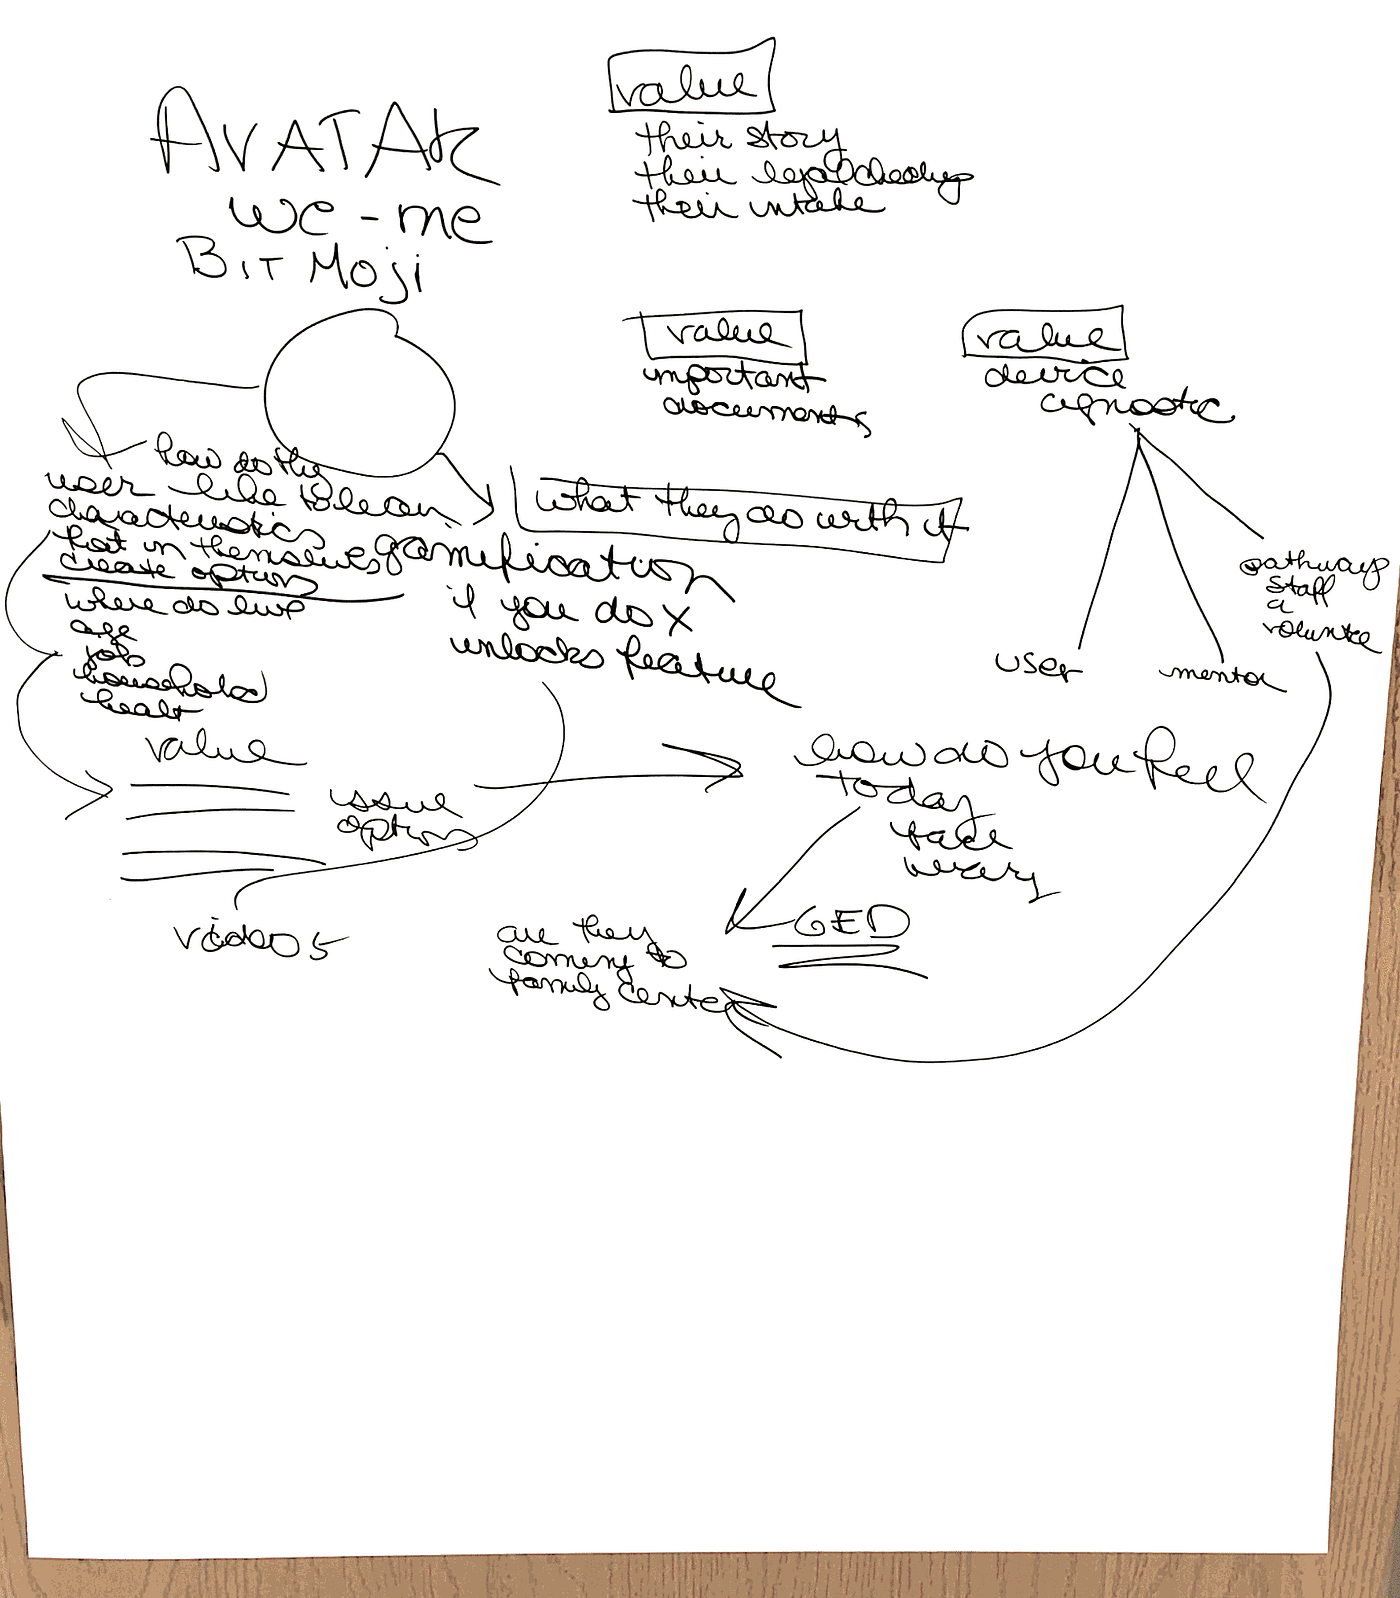 AVATAR
we-me
BIT Moji
value
their story
their legal checkup
their intake
value
important
documents
value
device
agnostic
user
mentor
pathways
staff
a
voluntee
how do the
user like to lean
characteristics
that in themselves
create options
where do live
age
job
household
healt
value
issue
options
videos
what they do with it
gamification
if you do X
unlocks feature
how do you feel
today
take
GED
are they
coming to
family center